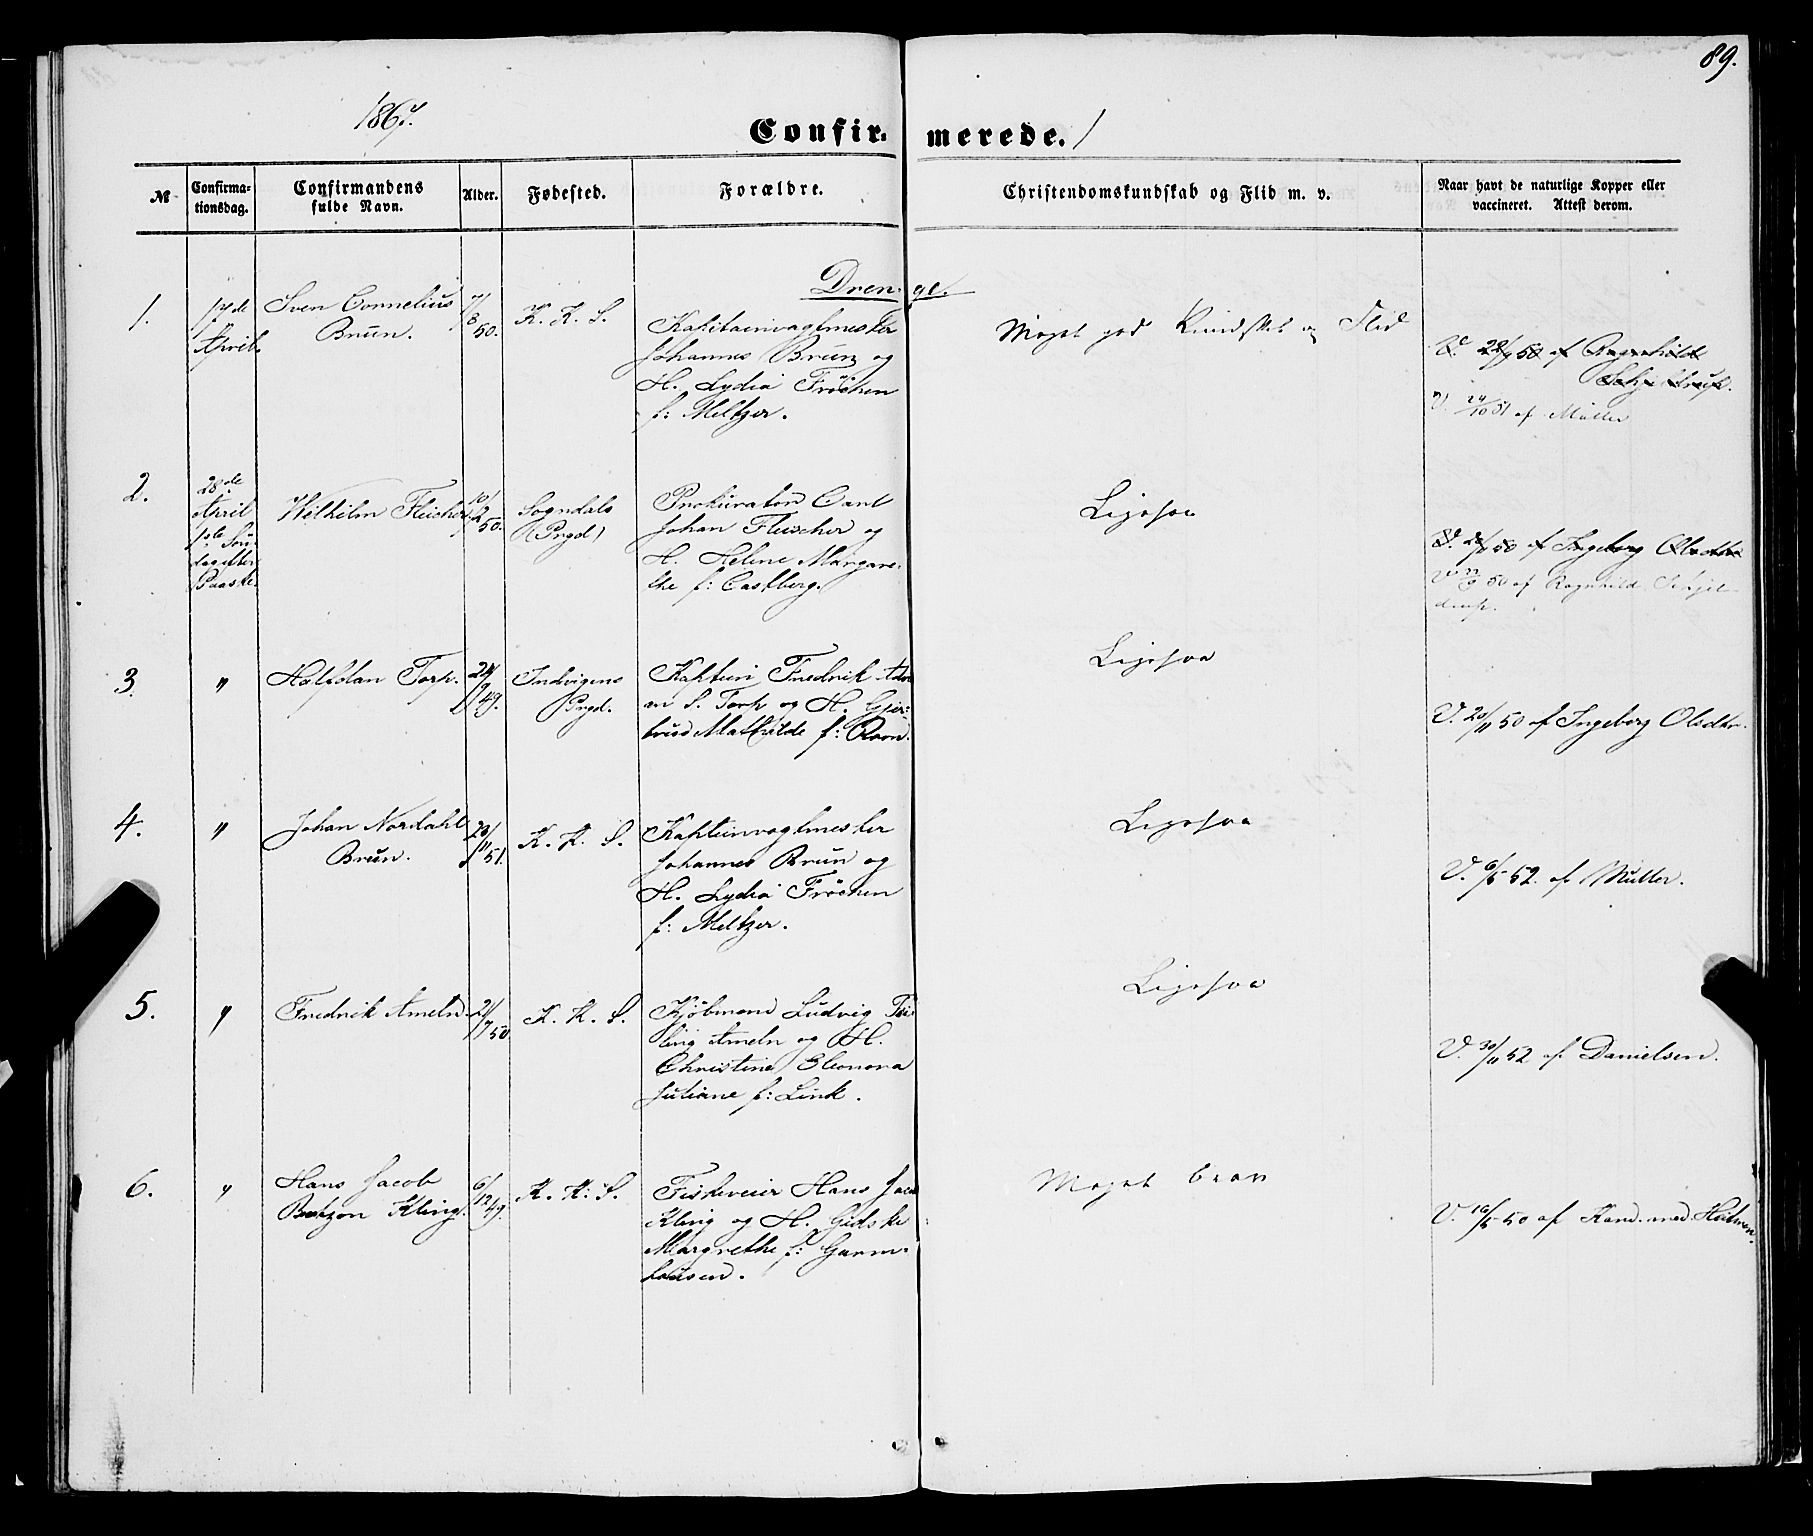 89.
1867.
Confirmerede.
№
Confirmationsdag.
Confirmandens fulde Navn.
Alder.
Fødested.
Forældre.
Christendomskundskab og Flid m. v.
Naar havt de naturlige Kopper eller
vaccineret. Attest derom.
Drenge.
1.
17de
April.
Sven Cornelius
Brun.
7/8 50.
K. K. S.
Kapitainvagtmester
Johannes Brun og
H. Lydia Fröchen
f: Meltzer.
Meget god Kundskab og Flid
V. 50 af Ragnhild
V. 24/10 51 af Müller
2.
28de
April
1ste Søn-
dag efter
Paaske.
Wilhelm Fleischer
50.
Sogndals
(Prgd)
Prokurator Carl
Johan Fleischer og
H. Helene Margare-
the f: Castberg.
Ligesaa
50 af Ingeborg Olsdtr
50 af Ragnhild Schjel-
drup.
3.
"
Halfdan Torp.
49.
Indvigens
Prgd.
Kaptein Fredrik
S. Torp og H. Gjer-
trud Mathilde f: Ravn.
Ligesaa
V. 20/11 50 af Ingeborg Olsdtr.
4.
"
Johan Nordahl
Brun.
23/11 51.
K. K. S.
Kapteinvagtmester
Johannes Brun og
H. Lydia Fröchen
f: Meltzer.
Ligesaa
V. 6/5 52. af Müller.
5.
"
Fredrik Ameln.
21/7 50
K. K. S.
Kjöbmand Ludvig
Ameln og H.
Christine Eleonora
Juliane f: Link.
Ligesaa
V. 30/11 52 af Danielsen.
6.
"
Hans Jacob
Kling.
6/12 49.
K. K. S.
Fiskeveier Hans Jacob
Kling og H. Gidske
Margrethe f: Garm-
housen.
Meget brav
V. 16/5 50 af Kand. med.